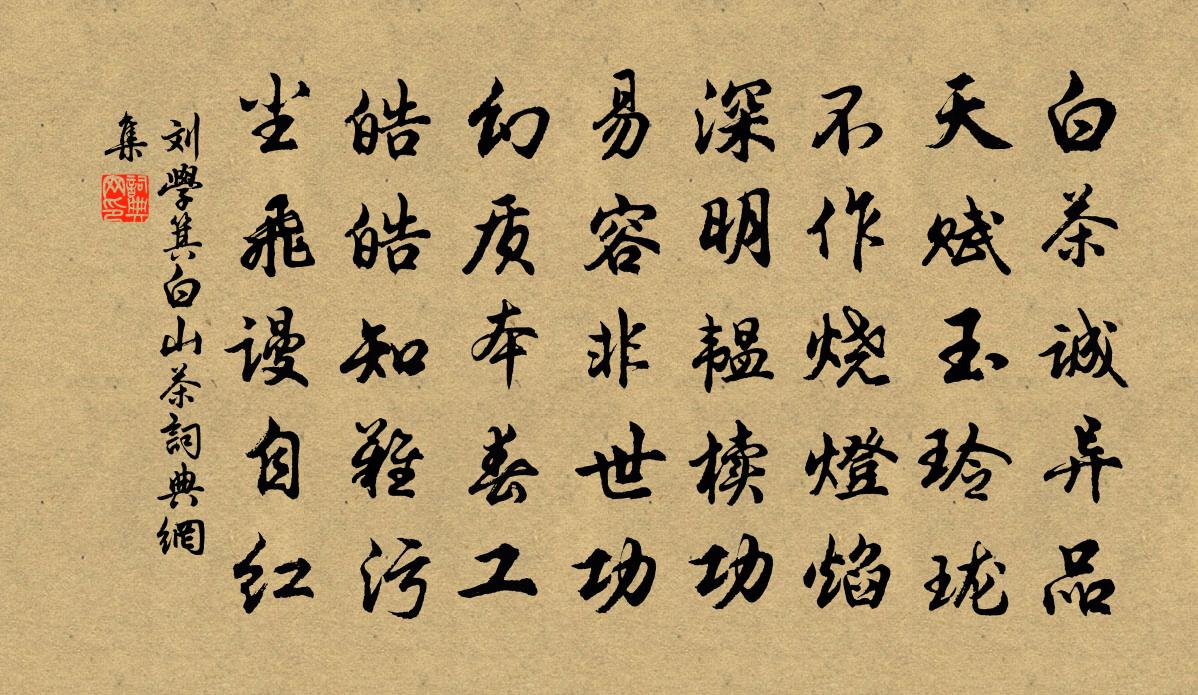 白茶诚异品
天赋玉玲珑
不作烧燈焰
深明韫椟功
易容非世功
幻质本春工
皓皓知難污
尘飛谩自红
刘學箕白山茶詞典網
集
詞典網印